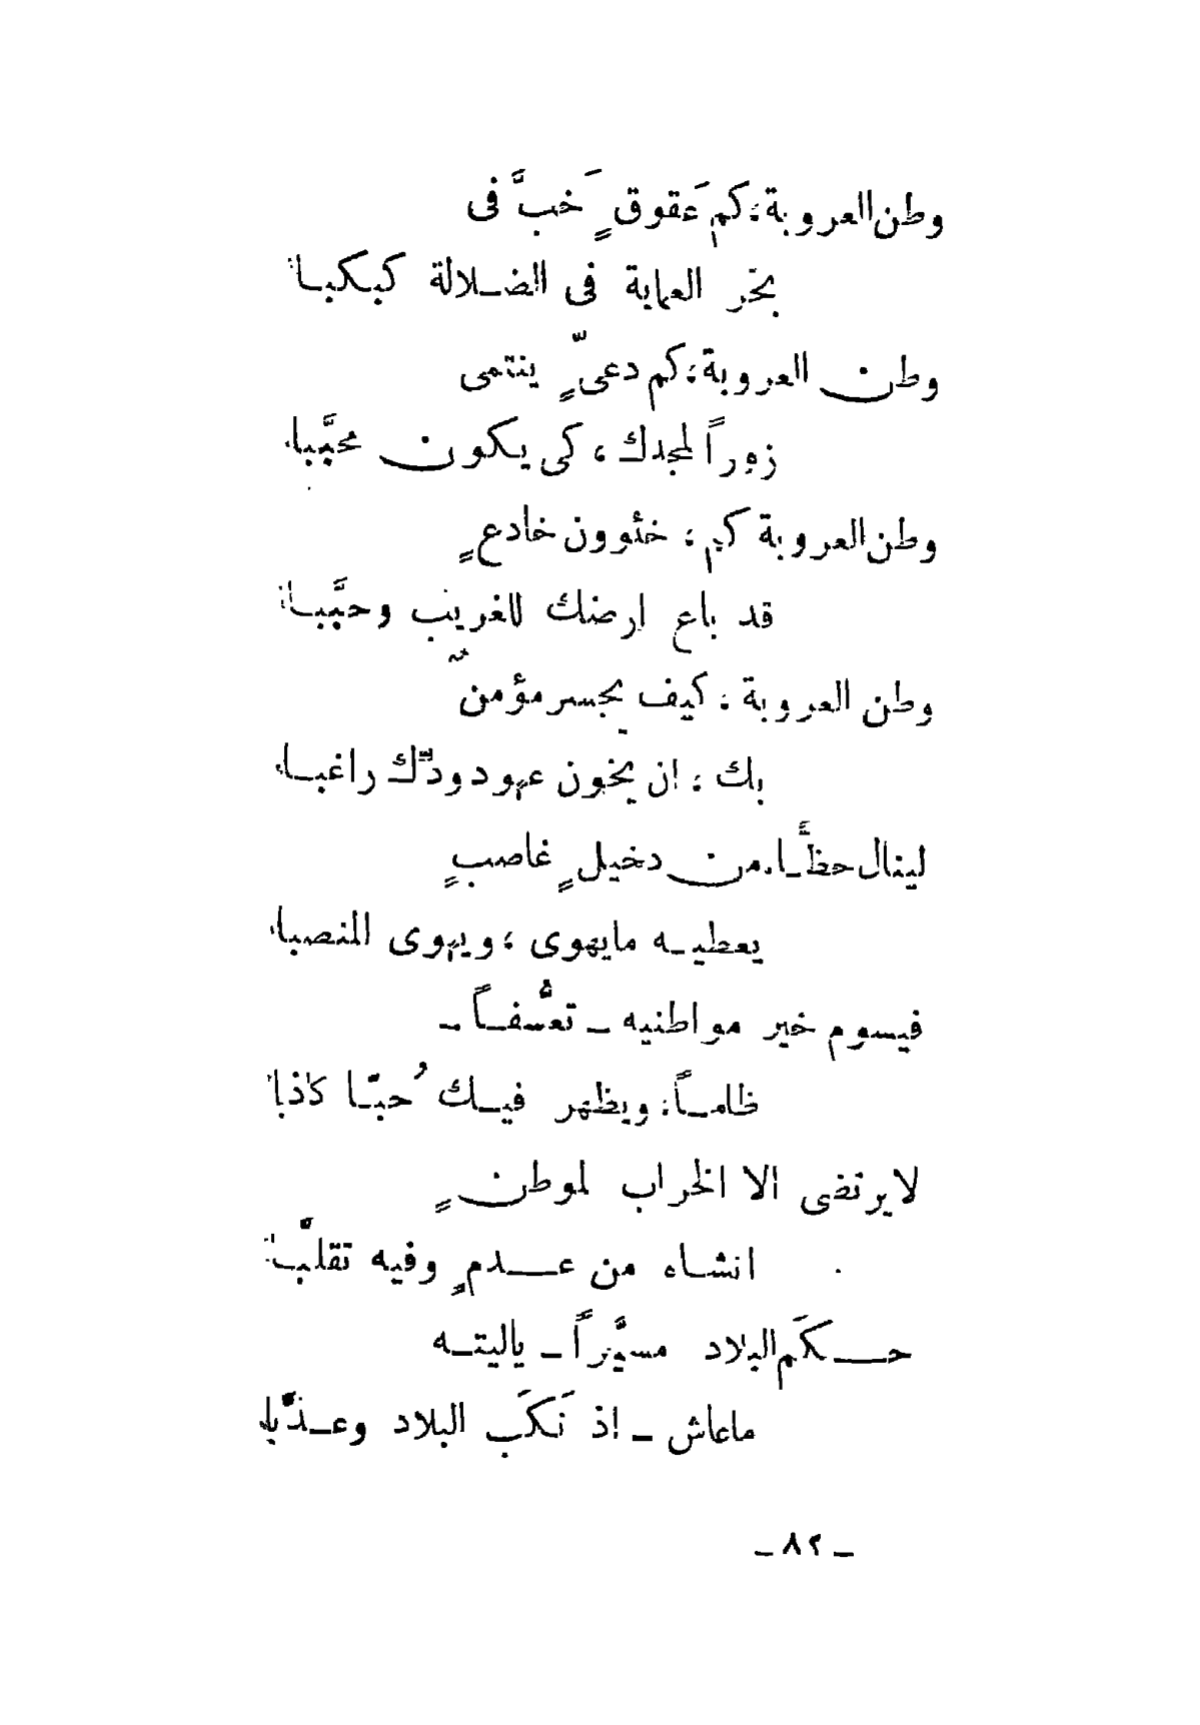 وطن العروبة، كم عَقوقٍ خَبَّ في
بحر العماية في الضلالة كبكبا
وطن العروبة، كم دعيٍّ ينتمى
زوراً لمجدك، كى يكون محبَّبا
وطن العروبة كم، خئوون خادعٍ
قد باع ارضك للغريب وحبَّبا
وطن العروبة، كيف يجسر مؤمن
بك، ان يخون عهود ودّك راغبا
لينال حظَّا من دخيلٍ غاصبٍ
يعطيه مايهوى، ويهوى المنصبا
فيسوم خير مواطنيه ـ تعسُّفاً ـ
ظلماً، ويظهر فيك حُبّا كاذبا
لايرتضى الا الخراب لموطنٍ
انشاه من عدمٍ وفيه تقلَّبا
حكَم البلاد مسيَّراً ـ ياليته
ماعاش ـ اذ نَكَبَ البلاد وعذَّبا
ـ ٨٢ ـ